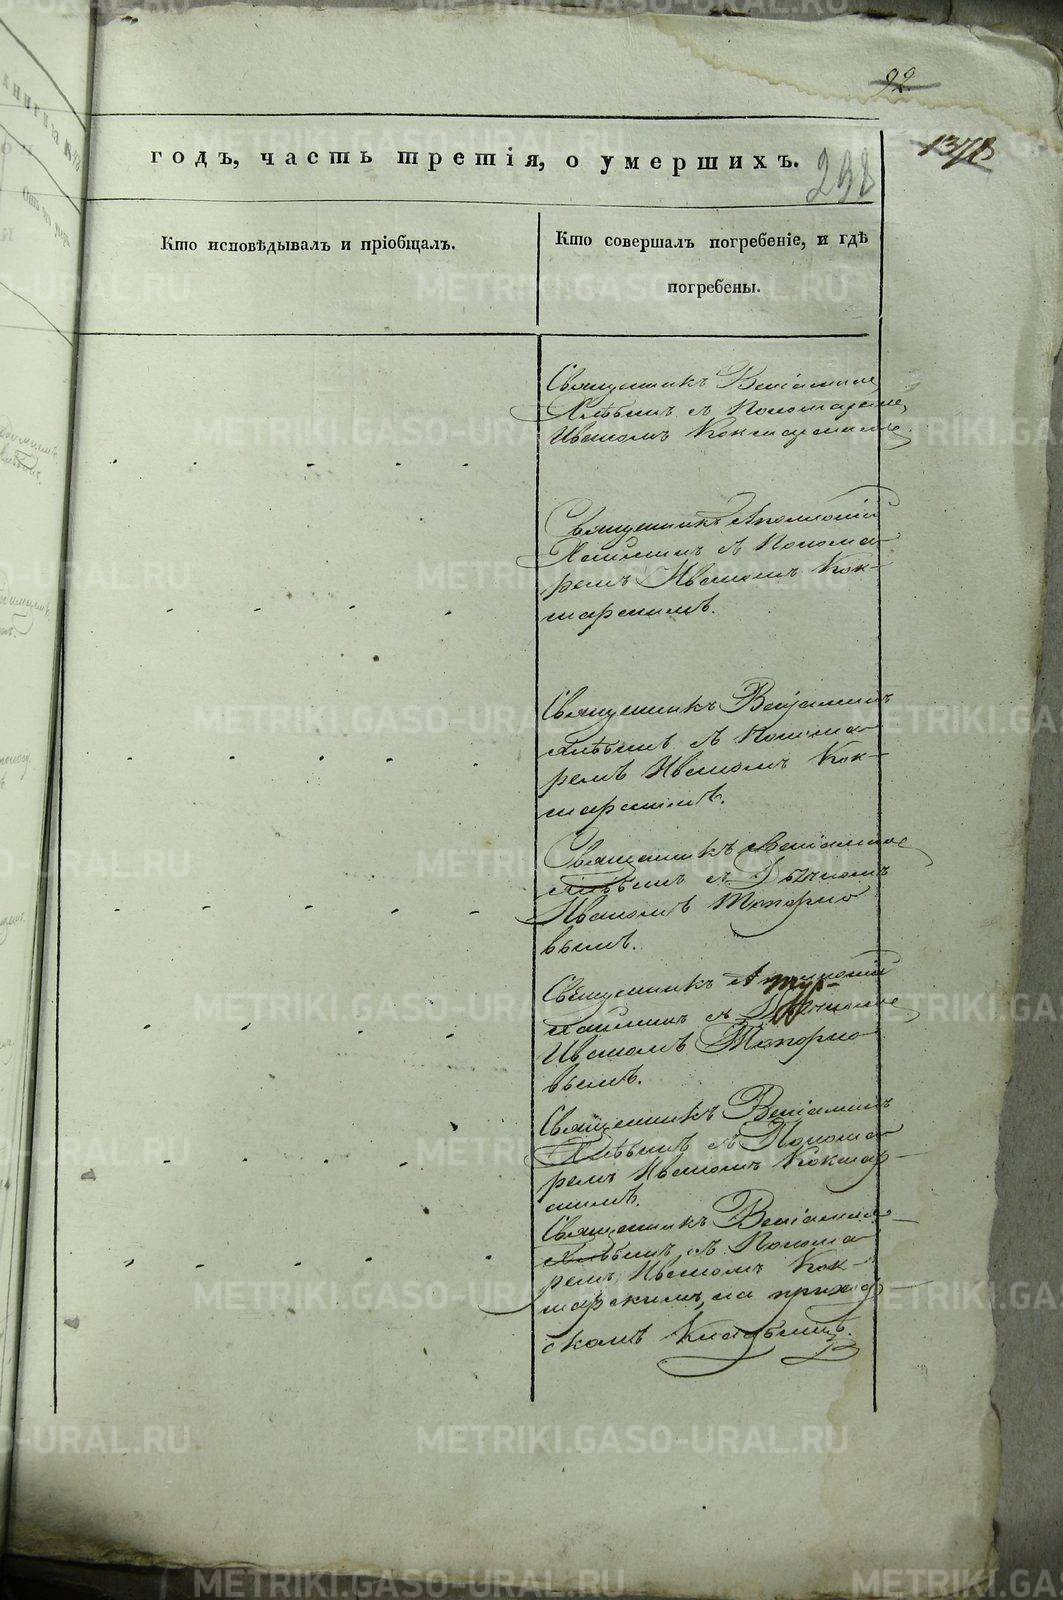 92
1378
годъ, часть третія, о умершихъ.
298
Кто исповѣдывалъ и пріобщалъ.
Кто совершалъ погребеніе, и гдѣ
погребены.
Священникъ Веніаминъ
Хлѣбинъ съ Пономаремъ
Иваномъ Кокшарскимъ
Священникъ Аполлоній
съ Понома
ремъ Иваномъ Кок-
шарскимъ.
Священникъ Веніаминъ
Хлѣбинъ съ Понома
ремъ Иваномъ Кок-
шарскимъ.
Священникъ Веніаминъ
Хлѣбинъ съ Дьячкомъ
Иваномъ Топорко
вымъ.
Священникъ Аполлоній
съ
Иваномъ Топорко
вымъ.
Священникъ Веніаминъ
Хлѣбинъ съ Понома
ремъ Иваномъ Кокшар-
скимъ.
Священникъ Веніаминъ
Хлѣбинъ съ Понома
ремъ Иваномъ Кок-
шарскимъ, на приход
скомъ Кладбищѣ.
METRIKI.GASO-URAL.RU